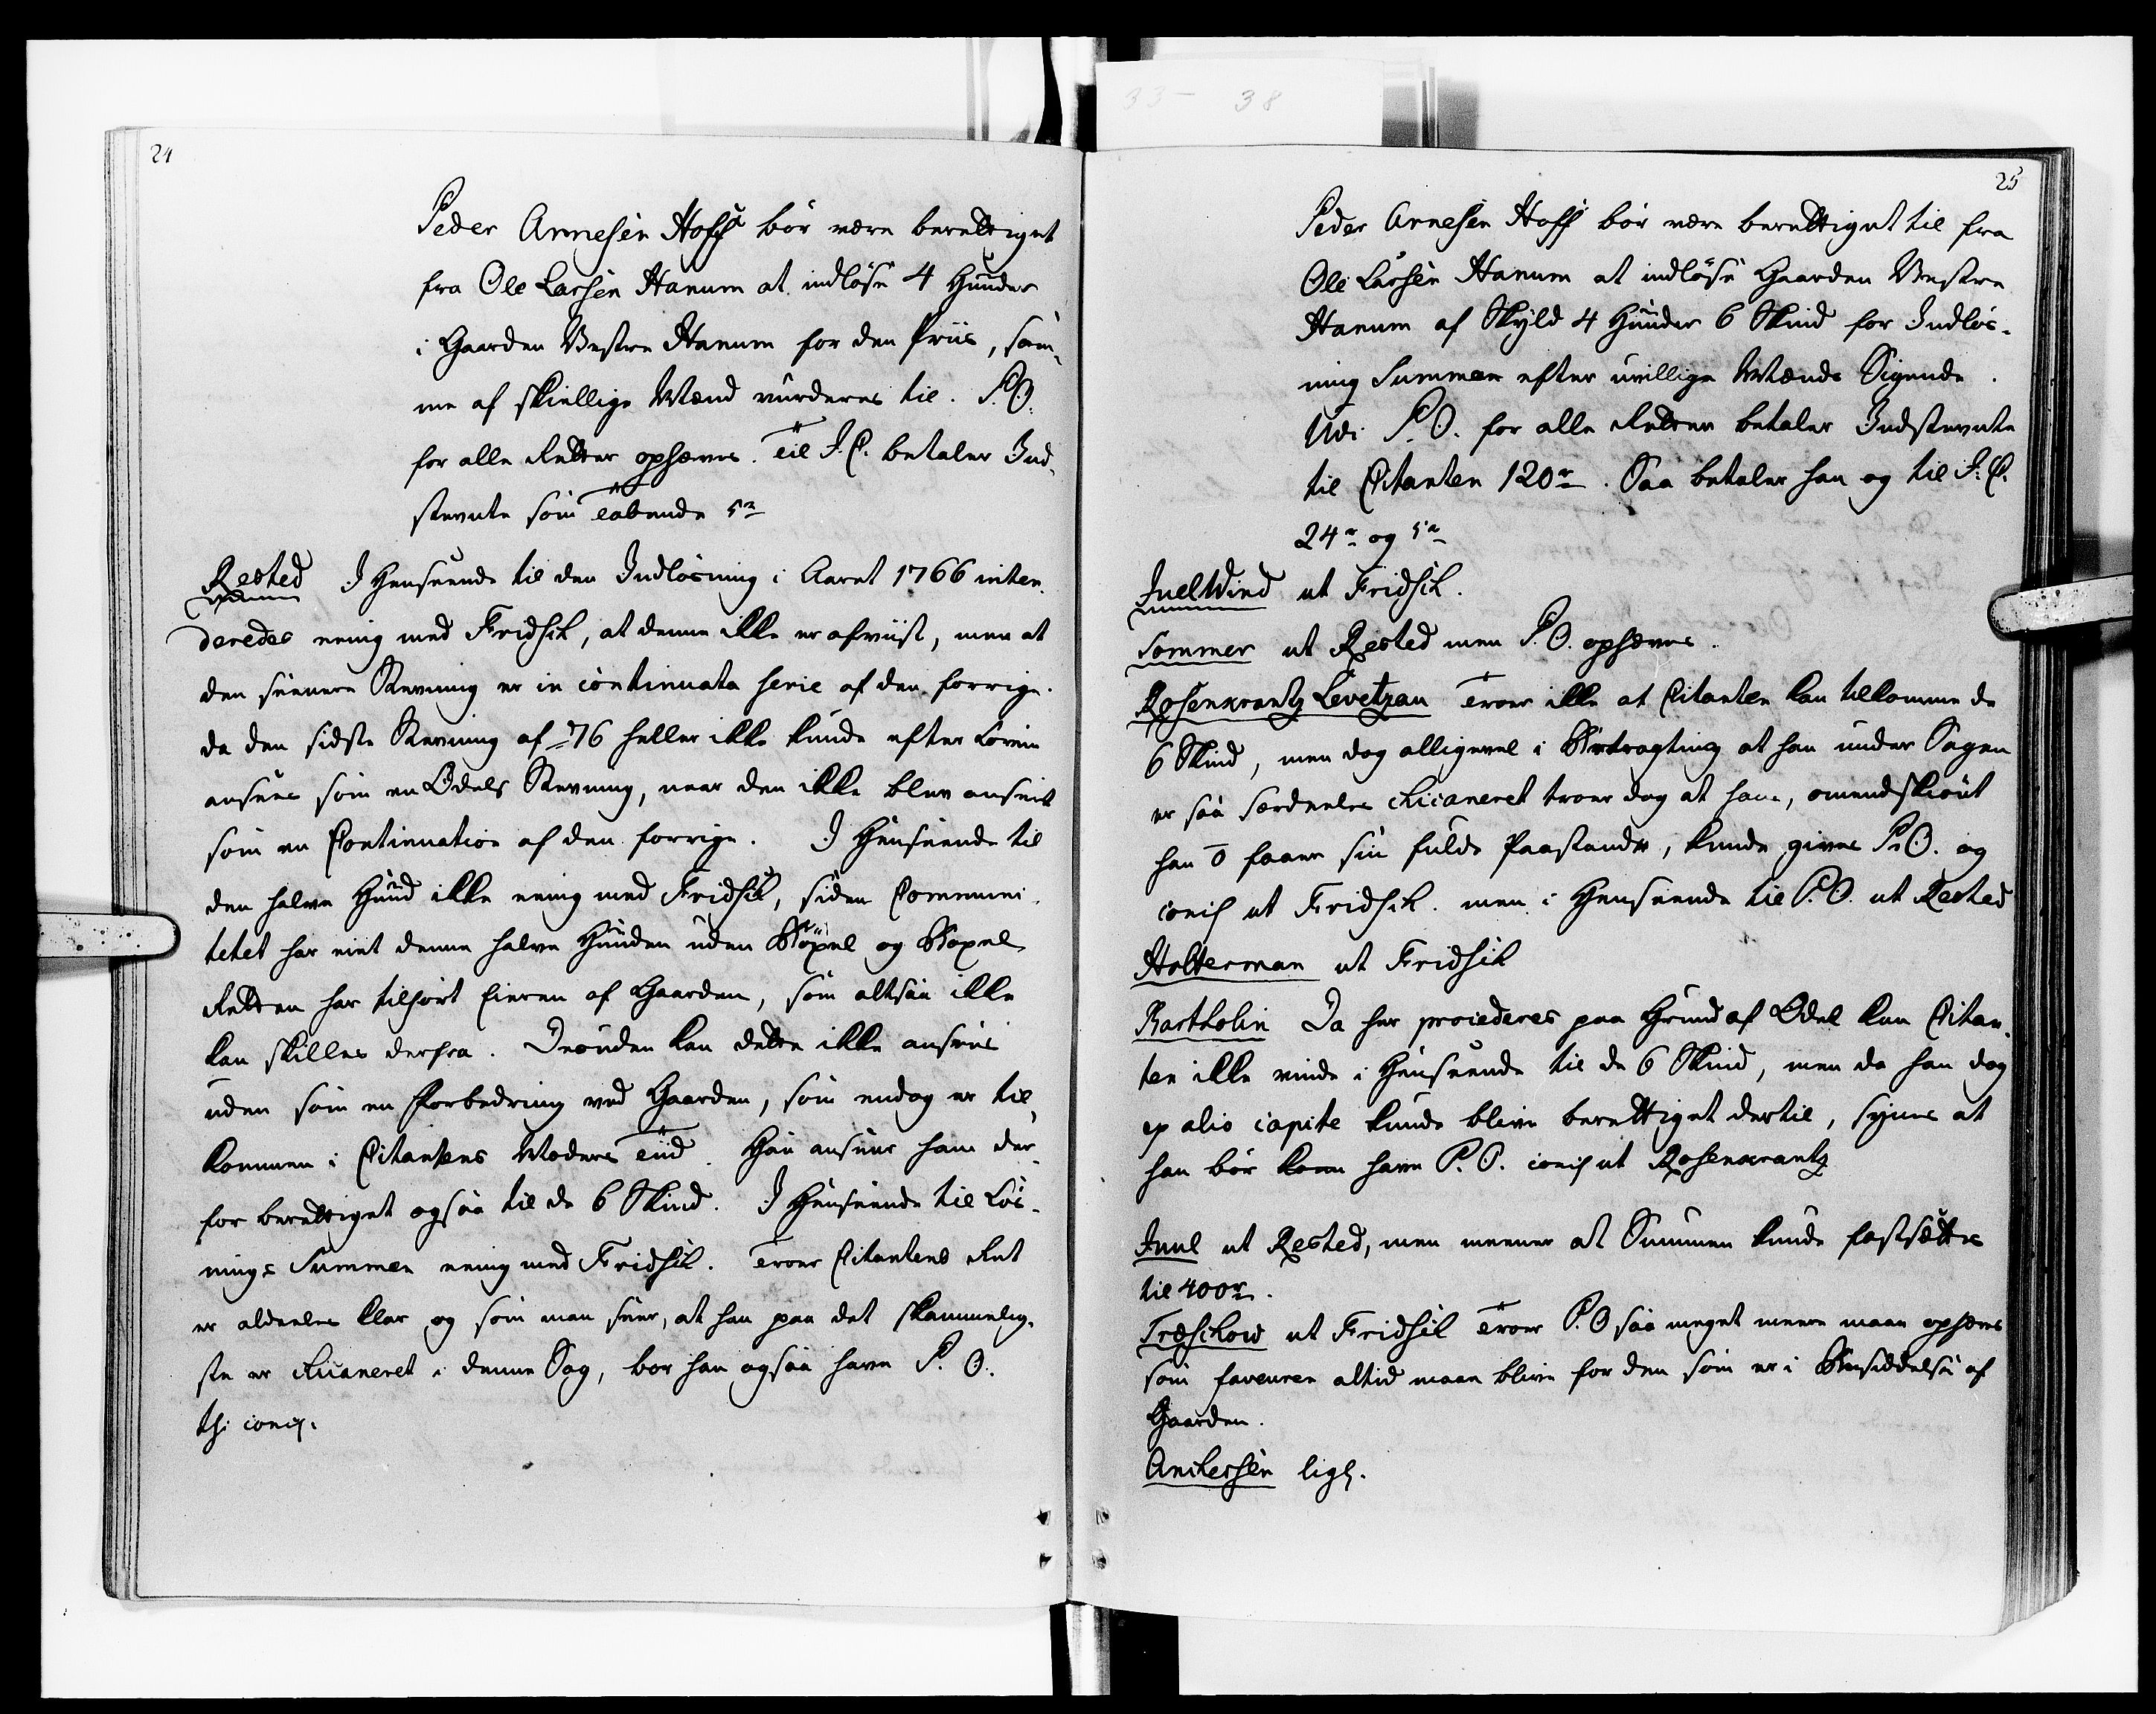 33 - 38
24
Peder Arnesen Hoff bör være berettiget
fra Ole Larsen Hanum at indlöse 4 Huuder
i Gaarden Vestre Hanum for den Priis, sam-
me af skiellige Mænd vurderes til. P.O.
for alle Retter ophæves. Til J.C. betaler Ind-
stevnte som tabende 5 rd
Rested I Henseende til den Indlösning i Aaret 1766 inten-
deredes eenig med Fridsch, at denne ikke er afviist, men at
den seenere Stevning er in continuata serie af den forrige.
da den sidste Stevning af 76 heller ikke kunde efter Loven
ansees som en Odels Stevning, naar den ikke blev anseet
som en Continuation af den forrige. I Henseende til
den halve Huud ikke eenig med Fridsch, siden Communi-
tetet har eiet denne halve Huuden uden Böxel og Boxel
Retten har tilhört Eieren af Gaarden, som altsaa ikke
kan skilles derfra. Desuden kan dette ikke ansees
uden som en Forbedring ved Gaarden, som endog er til-
kommen i Citantens Moders Tiid. Han anseer ham der-
for berettiget ogsaa til de 6 Skind. I Henseende til Lös-
nings Summen eenig med Fridsch. Troer Citantens Ret
er aldeeles klar og som man seer, at han paa det skammelig-
ste er chicaneret i denne Sag, bor han ogsaa have P. O.
thi conch.
25
Peder Arnesen Hoff bör være berettiget til fra
Ole Larsen Hanum at indlöse Gaarden Vestre
Hanum af Skyld 4 Huuder 6 Skind for Indlös-
ning Summen efter uvillige Mænds Sigende.
Udi P.O. for alle Retter betaler Indstevnte
til Citanten 120 rd. Saa betaler han og til J.C.
24 rd og 5 rd
Juel Wind ut Fridsch.
Sommer ut Rested men P.O. ophæves.
Rosenkrantz Levetzau Troer ikke at Citanten kan tilkomme de
6 Skind, men dog alligevel i Betragting at han under Sagen
er saa særdeeles chicaneret troer dog at han, omendskiönt
han o faaer sin fulde Paastand, kunde gives P.O. og
conch ut Fridsch. men i Henseende til P.O. ut Rested
Holterman ut Fridsch
Bartholin Da her procederes paa Grund af Odel kan Citan-
ten ikke vinde i Henseende til de 6 Skind, men da han dog
ex alio capite kunde blive berettiget dertil, synes at
han bör have P.O. conch ut Rosenkrantz
Juul ut Rested, men meener at Summen kunde fastsættes
til 400 rd.
Treschow ut Fridsch Troer P.O. saa meget meere maae ophæves
som faveuren altid maae blive for den som er i Besiddelse af
Gaarden.
Anchersen ligl.